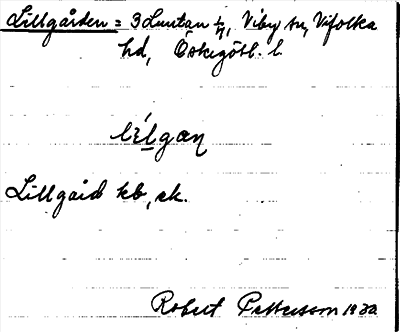 Lillgården = 3 Luntan 1/4, Viby sn, Vifolka
hd, Östergötl. l.
lílgan
Lillgård kb, sk.
Robert Pettersson 1930